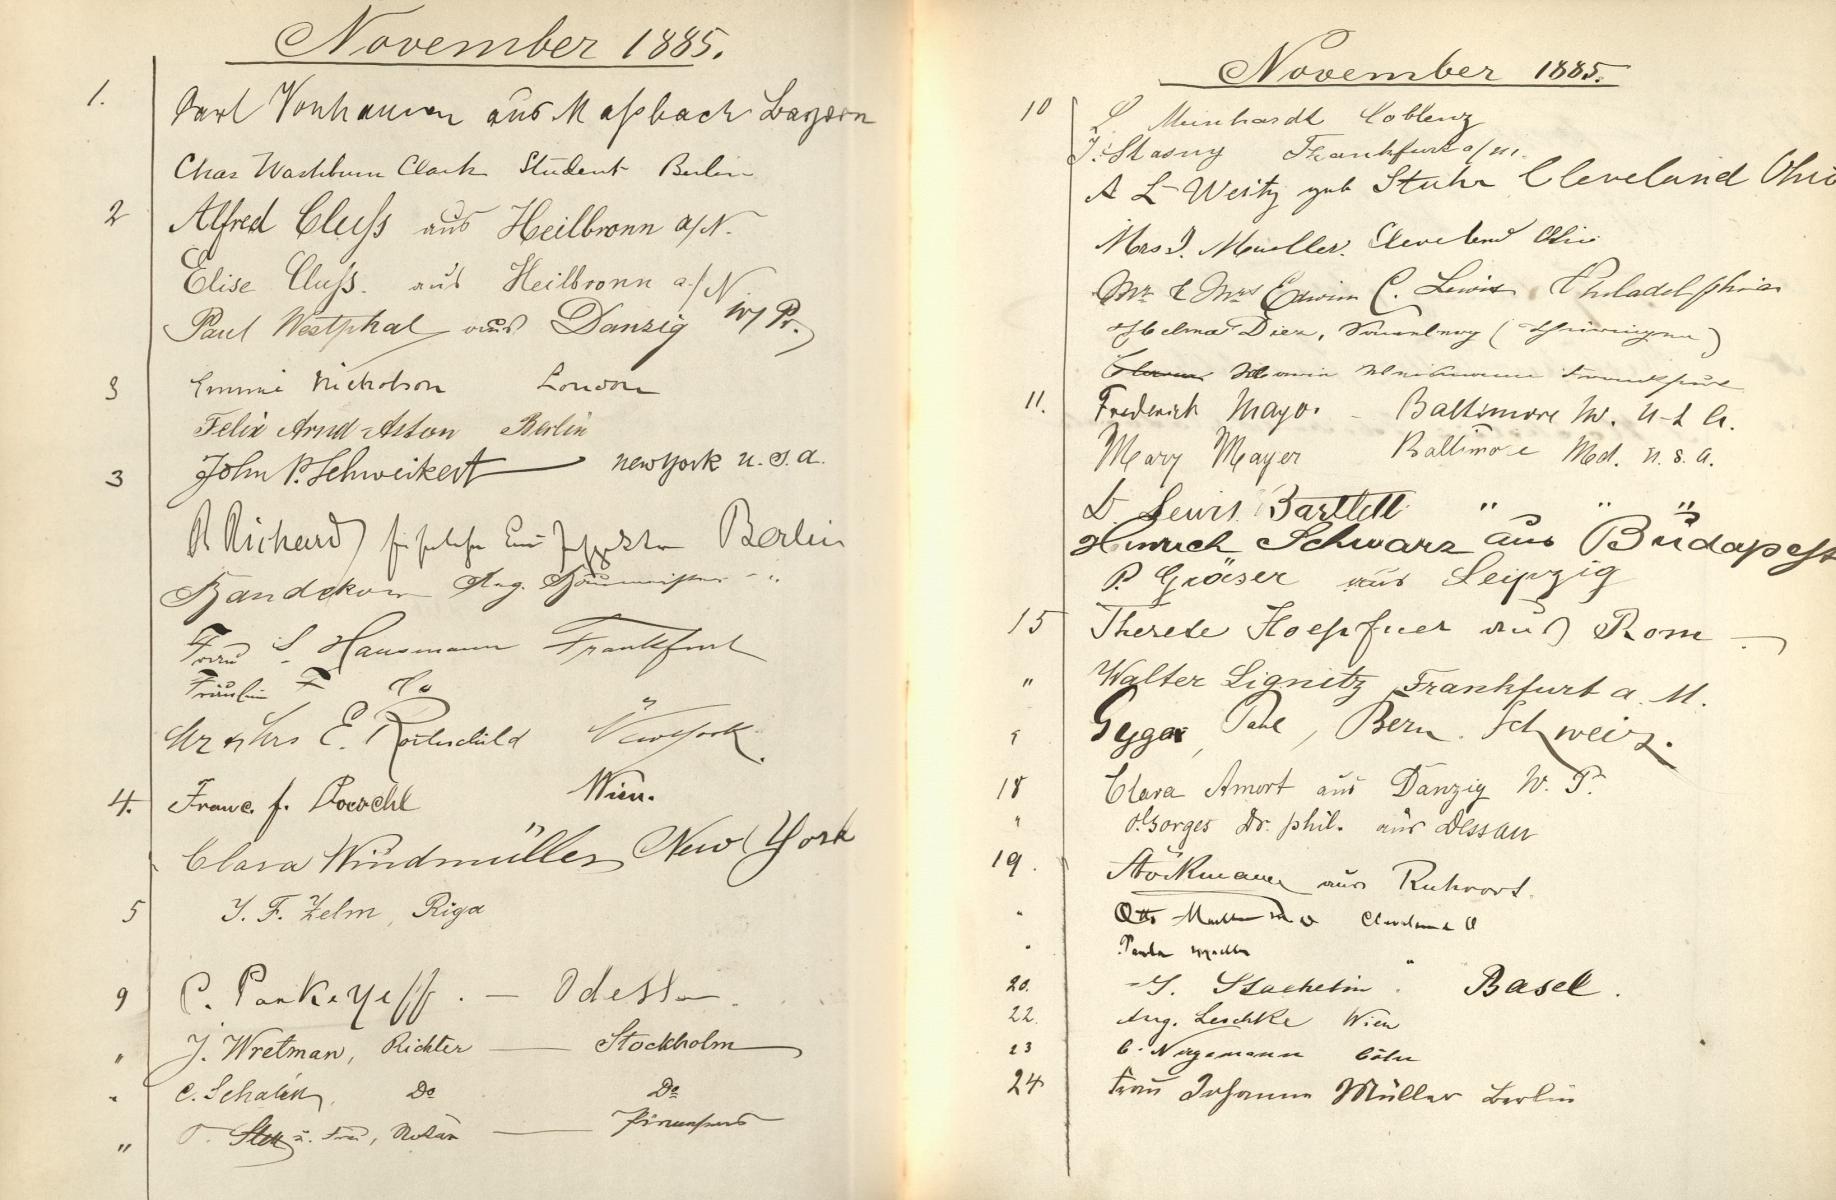 November 1885.
1. Carl Vonhausen aus Maßbach Bayern
Chas Washburn Clark Student Berlin
2 Alfred Cluss aus Heilbronn a/N.
Elise Cluss. aus Heilbronn a/N.
Paul Westphal aus Danzig W/Pr.
3 Emmie Nicholson London
Felix Arnd-Aston Berlin
3 John P. Schweikert New York U.S.A.
R Richard Berlin
Aug.
Frau S. Hausmann Frankfurt
Fräulein F Do
Mr & Mrs E. Rothschild New York.
4. Wien.
Clara Windmüller New York
5 J. F. Zelm, Riga
9 C. Pankeyeff. — Odessa.
" J. Wretman, Richter — Stockholm
" C. Do Do
" u. Frau, Notar —
November 1885.
10 L Meinhardt Coblenz
J. Stasny Frankfurt a/M.
A L Weitz geb Stuhr Cleveland Ohio
Mrs J. Mueller. Cleveland Ohio
Mr & Mrs Edwin C. Lewis Philadelphia
Frankfurt
11. Frederick Mayer - Baltimore M. U-S A.
Mary Mayer Baltimore Md. U.S.A.
D. Lewis Bartlett " " "
Heinrich Schwarz aus Budapest
P. Gräser aus Leipzig
15 Therese Hoepfner aus Rom —
" Walter Lignitz Frankfurt a. M.
" Gygax, Paul, Bern. Schweiz.
18 Clara Amort aus Danzig W. P.
" Dr. phil. aus Dessau
19. Stöckmann aus Ruhrort.
" Otto Cleveland O
" Paula
20. J. Staehelin Basel.
22. Aug. Leschke Wien
23 C. Cöln
24 Frau Johanna Müller Berlin